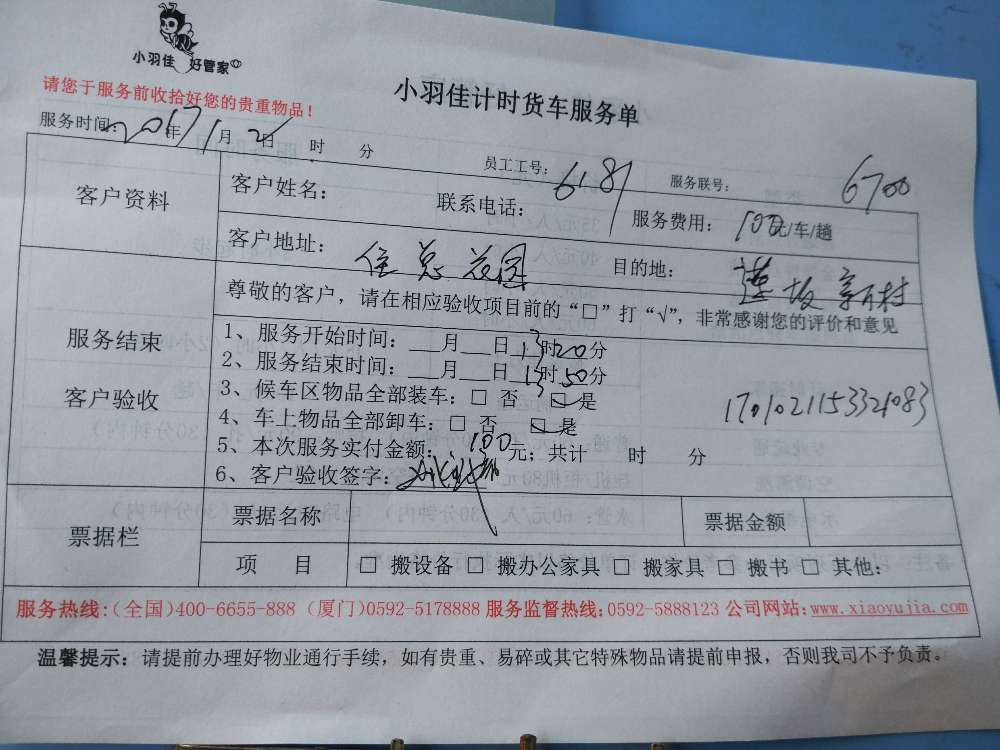 小羽佳 好管家
小羽佳计时货车服务单
请您于服务前收拾好您的贵重物品！
服务时间：2017年1月2日 时 分
员工工号：6187 服务联号：6700
客户资料
客户姓名： 联系电话： 服务费用：100元/车/趟
客户地址：住总花园 目的地：莲坂新村
服务结束
客户验收
尊敬的客户，请在相应验收项目前的“□”打“√”，非常感谢您的评价和意见
1、服务开始时间：___月___日13时20分
2、服务结束时间：___月___日13时50分
3、候车区物品全部装车：□ 否 ☑ 是
4、车上物品全部卸车：□ 否 ☑ 是
170102115334083
5、本次服务实付金额：100元；共计 时 分
6、客户验收签字：
票据栏
票据名称 票据金额
项 目 □ 搬设备 □ 搬办公家具 □ 搬家具 □ 搬书 □ 其他：
服务热线：（全国）400-6655-888 （厦门）0592-5178888 服务监督热线：0592-5888123 公司网站：www.xiaoyujia.com
温馨提示：请提前办理好物业通行手续，如有贵重、易碎或其它特殊物品请提前申报，否则我司不予负责。